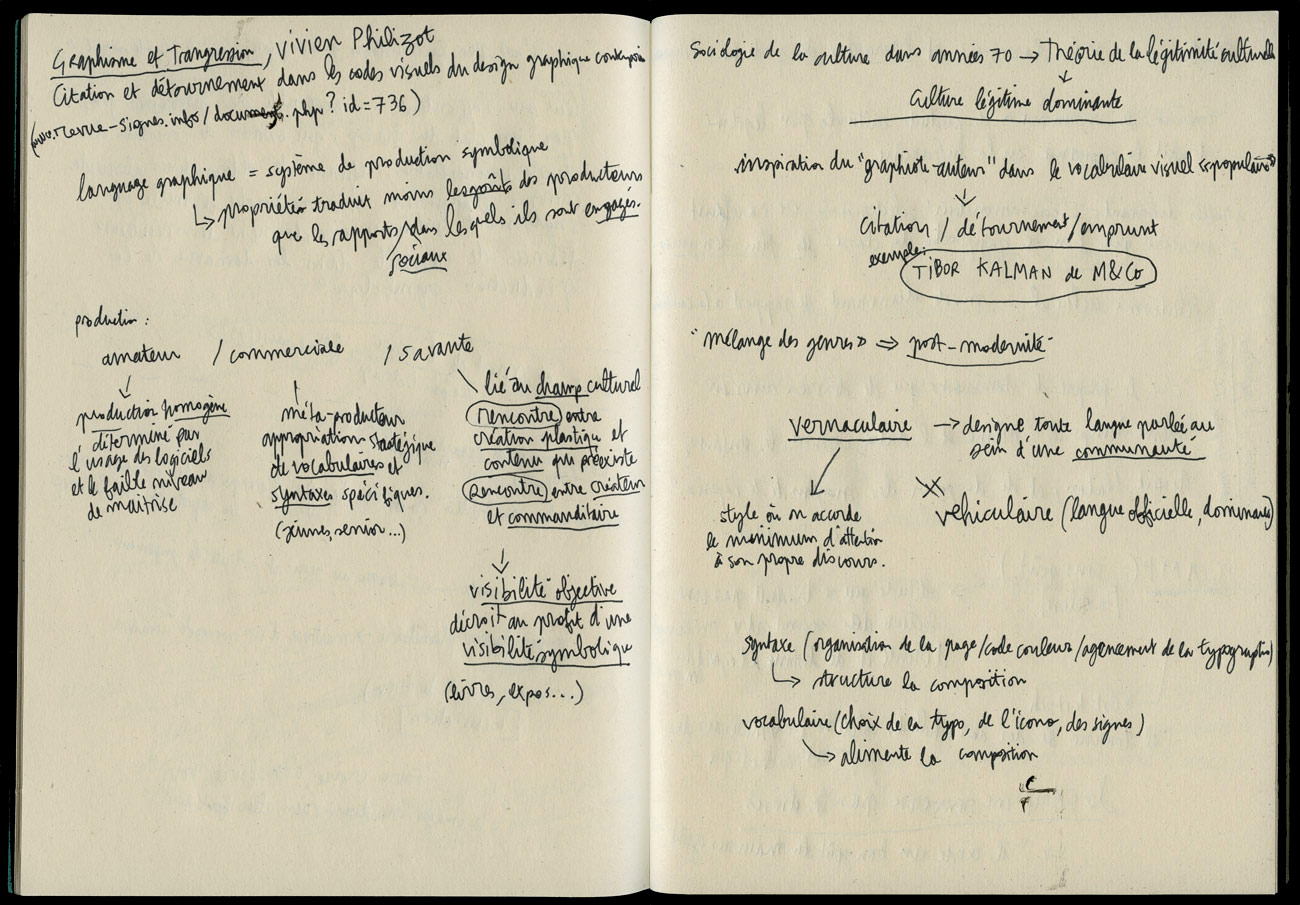 Graphisme et Trangression, Vivien Philizot
Citation et détournement dans les codes visuels du design graphique contemporain
(www.revue-signes.info/document.php?id=736)
language graphique = système de production symbolique
↳ propriétés traduit moins les goûts des producteurs
que les rapports / dans lesquels ils sont engagés.
sociaux
production :
amateur / commerciale / savante
↓
production homogène
déterminé par
l'usage des logiciels
et le faible niveau
de maîtrise
méta-producteur
appropriation stratégique
de vocabulaires et
syntaxes spécifiques.
(jeunes, senior...)
lié au champ culturel
rencontre entre
création plastique et
contenu qui préexiste
rencontre entre créateur
et commanditaire
↓
visibilité objective
décroit au profit d'une
visibilité symbolique
(livres, expos...)
Sociologie de la culture dans années 70 → Théorie de la légitimité culturelle
↓
culture légitime dominante
inspiration du "graphiste-auteur" dans le vocabulaire visuel «populaire»
↓
citation / détournement / emprunt
exemple:
TIBOR KALMAN de M&Co
"mélange des genres» ⇒ post-modernité
vernaculaire → designe toute langue parlée au
sein d'une communauté
style où on accorde
le minimum d'attention
à son propre discours.
vehiculaire (langue officielle, dominante)
syntaxe (organisation de la page/code couleur/agencement de la typographie)
↳ structure la composition
vocabulaire (choix de la typo, de l'icono, des signes)
↳ alimente la composition